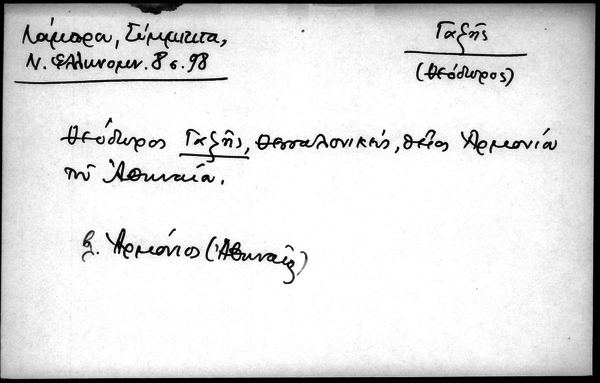 Λάμπρου, Σύμμικτα,
Ν. Ελληνομν. 8 σ. 98
Γαζῆς
(Θεόδωρος)
Θεόδωρος Γαζῆς, Θεσσαλονικεύς, θεῖος Ἁρμονία
τοῦ Ἀθηναία.
βλ. Ἁρμόνιος (Ἀθηναῖος)